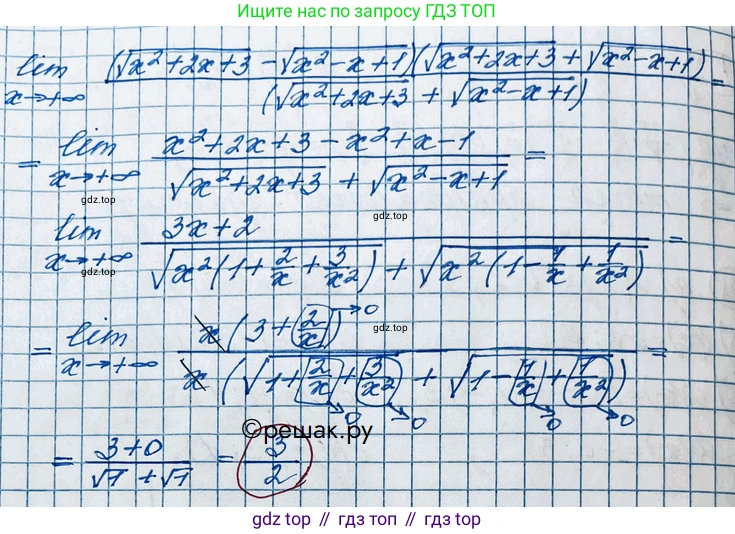 Ищите нас по запросу ГДЗ ТОП
lim x→+∞ (√x²+2x+3 - √x²-x+1)(√x²+2x+3 + √x²-x+1) / (√x²+2x+3 + √x²-x+1) =
= lim x→+∞ x²+2x+3-x²+x-1 / √x²+2x+3 + √x²-x+1 =
gdz.top gdz.top
lim x→+∞ 3x+2 / √x²(1+2/x+3/x²) + √x²(1-1/x+1/x²) =
gdz.top gdz.top
= lim x→+∞ x(3+2/x)→0 / x(√1+2/x+3/x² + √1-1/x+1/x²) =
gdz.top gdz.top
→0 →0 →0 →0
©решак.ру
= 3+0 / √1+√1 = 3/2
gdz top // гдз топ // gdz top